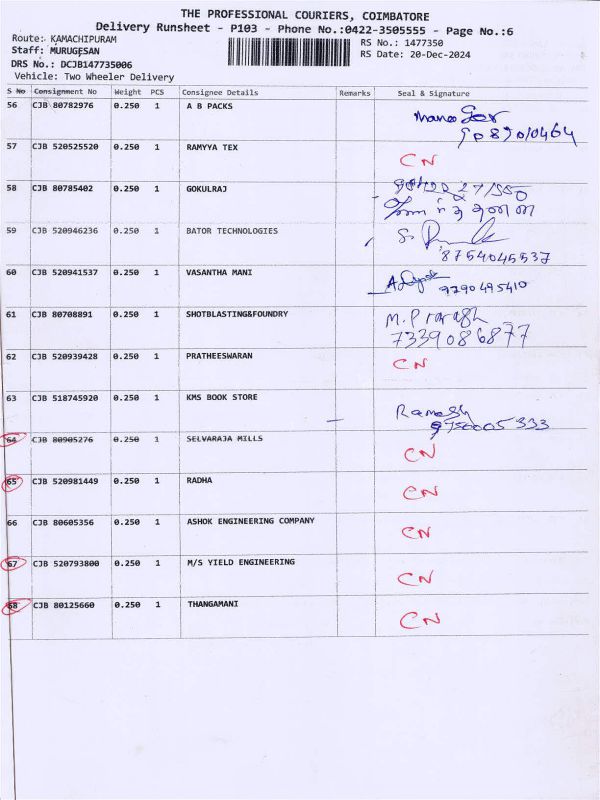 THE PROFESSIONAL COURIERS, COIMBATORE
Delivery Runsheet - P103 - Phone No.:0422-3505555 - Page No.:6
Route: KAMACHIPURAM
RS No.: 1477350
Staff: MURUGESAN
RS Date: 20-Dec-2024
DRS No.: DCJB147735006
Vehicle: Two Wheeler Delivery
S No Consignment No Weight PCS Consignee Details Remarks Seal & Signature
56 CJB 80782976 0.250 1 A B PACKS
57 CJB 520525520 0.250 1 RAMYYA TEX CN
58 CJB 80785402 0.250 1 GOKULRAJ
59 CJB 520946236 0.250 1 BATOR TECHNOLOGIES
8754045537
60 CJB 520941537 0.250 1 VASANTHA MANI
9790495410
61 CJB 80708891 0.250 1 SHOTBLASTING&FOUNDRY M.
7339086877
62 CJB 520939428 0.250 1 PRATHEESWARAN CN
63 CJB 518745920 0.250 1 KMS BOOK STORE Ramesh
9750005333
64 CJB 80905276 0.250 1 SELVARAJA MILLS CN
65 CJB 520981449 0.250 1 RADHA CN
66 CJB 80605356 0.250 1 ASHOK ENGINEERING COMPANY CN
67 CJB 520793800 0.250 1 M/S YIELD ENGINEERING CN
68 CJB 80125660 0.250 1 THANGAMANI CN